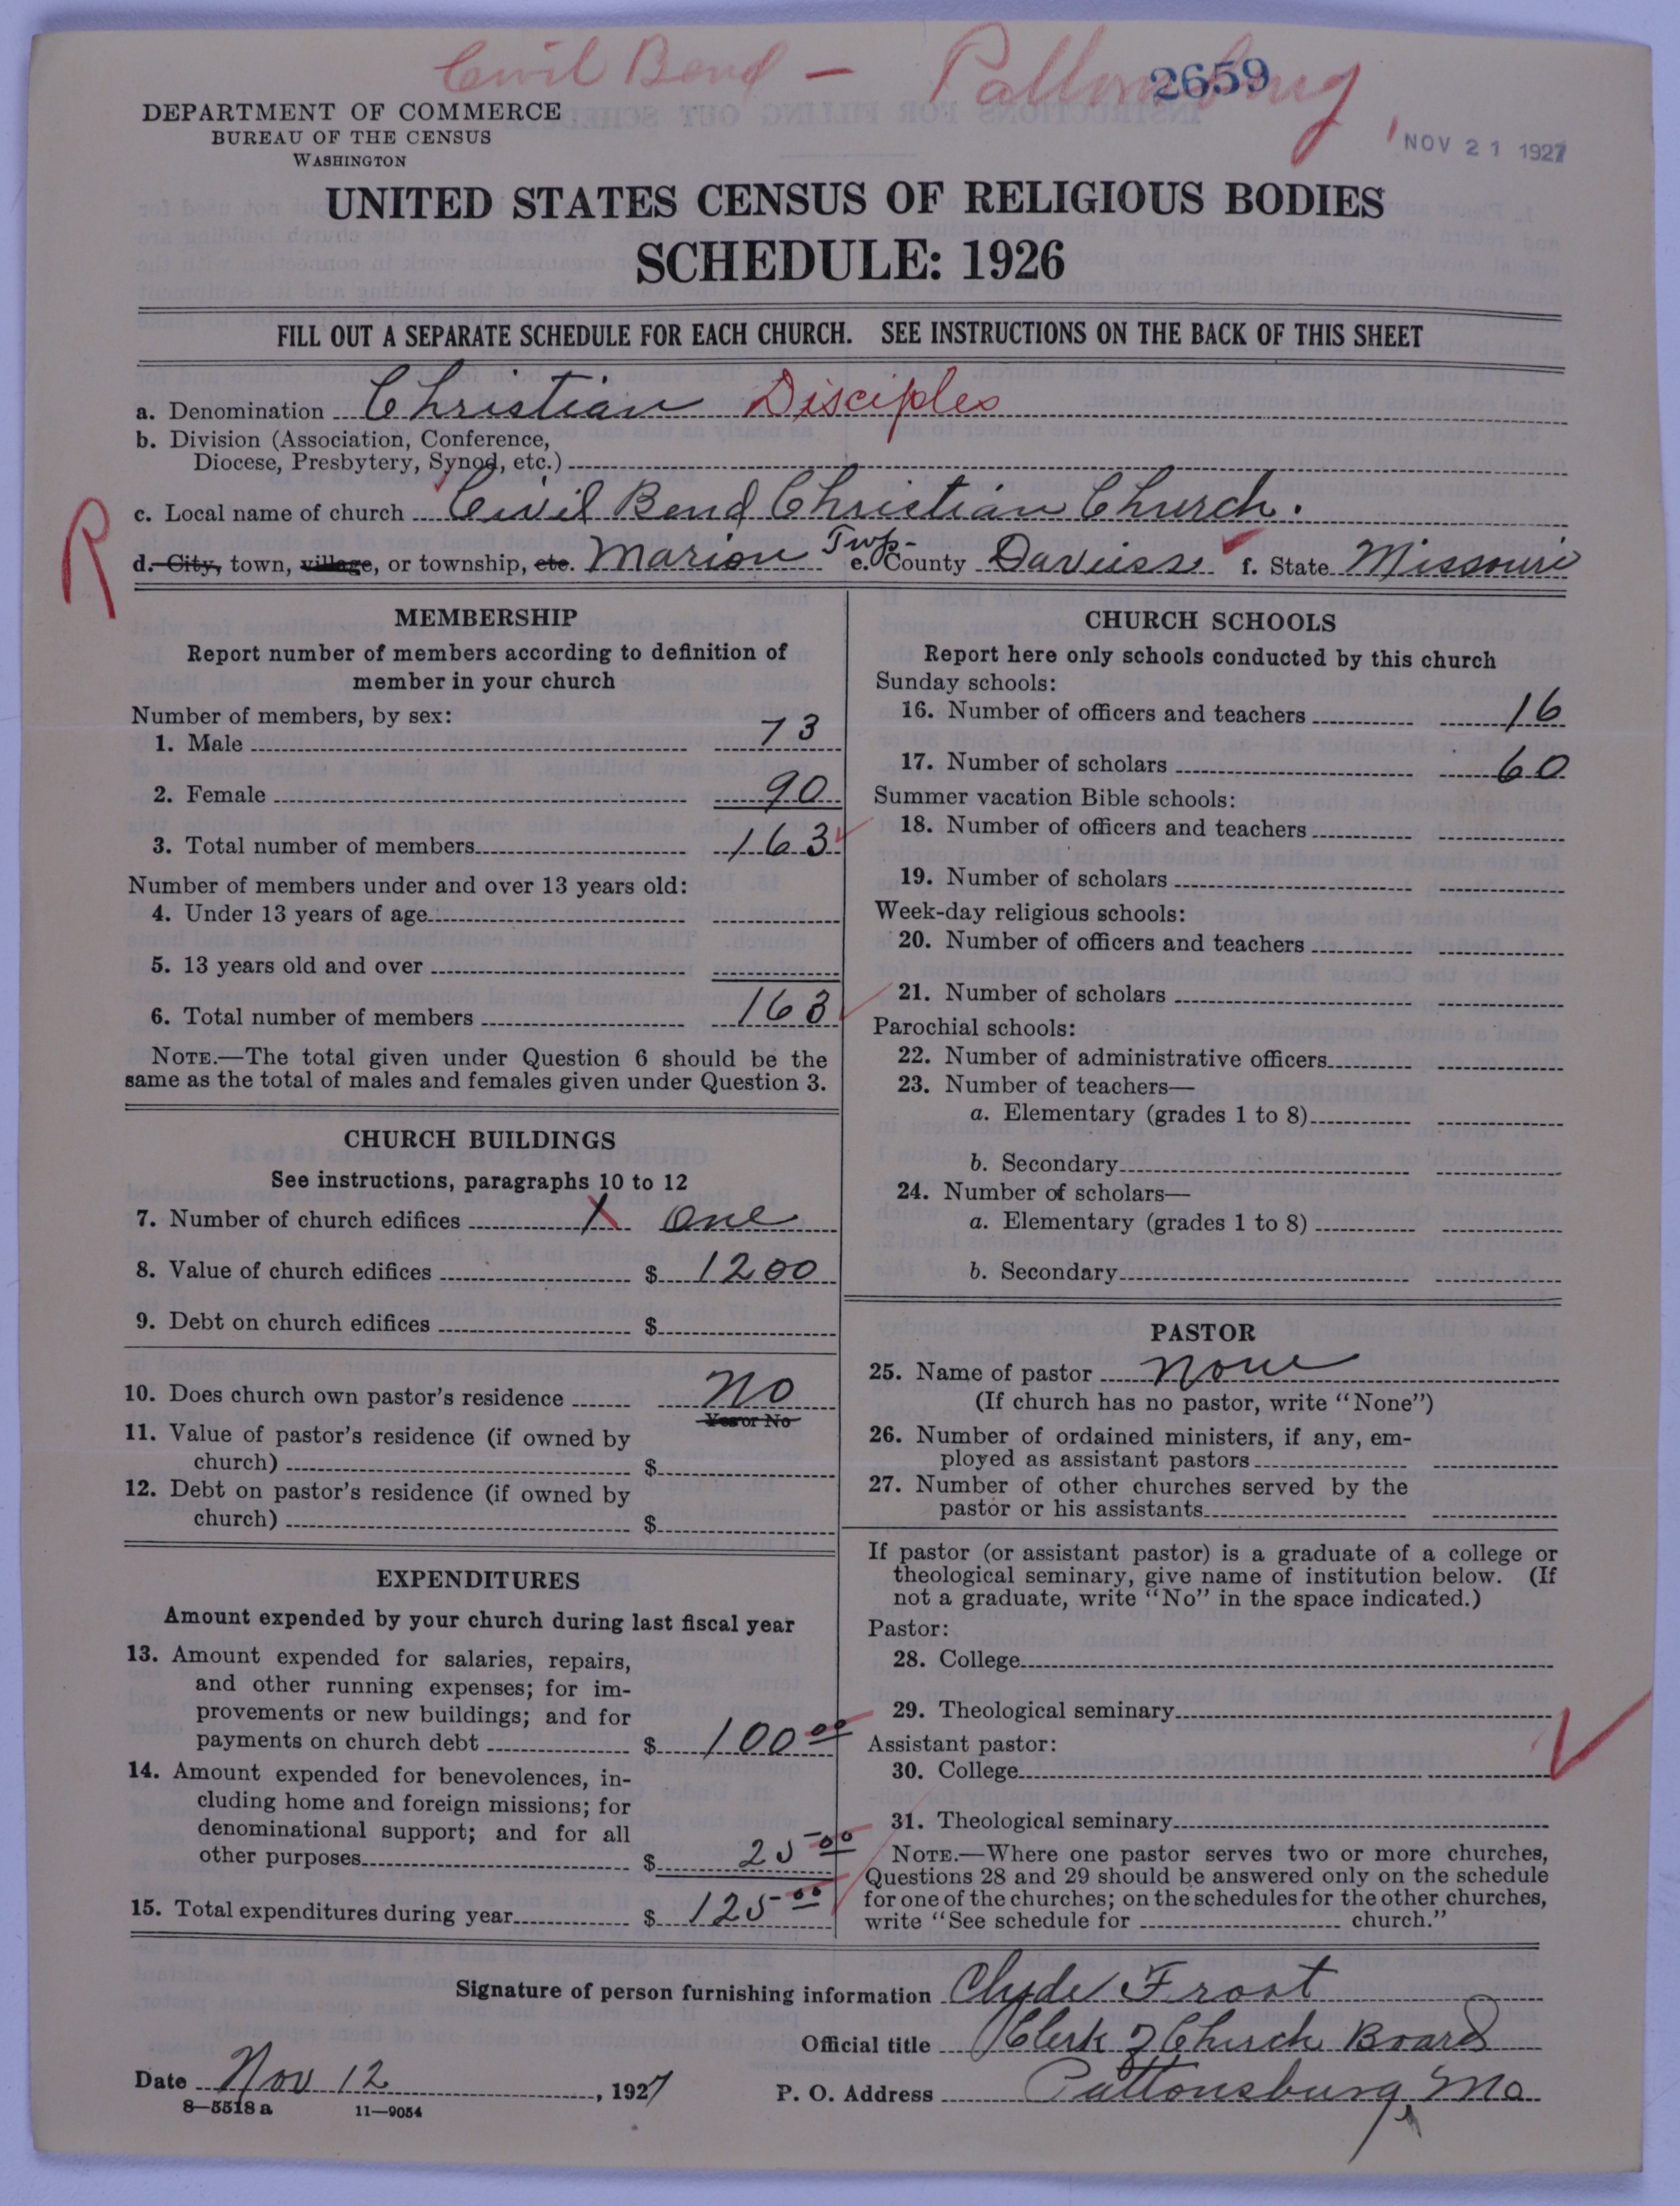 Civil Bend - Pattonsburg
2659
NOV 21 1927
DEPARTMENT OF COMMERCE
BUREAU OF THE CENSUS
WASHINGTON
UNITED STATES CENSUS OF RELIGIOUS BODIES
SCHEDULE: 1926
FILL OUT A SEPARATE SCHEDULE FOR EACH CHURCH. SEE INSTRUCTIONS ON THE BACK OF THIS SHEET
a. Denomination Christian Disciples
b. Division (Association, Conference,
Diocese, Presbytery, Synod, etc.)
c. Local name of church Civil Bend Christian Church.
R
d. City, town, village, or township, etc. Marion Twp. e. County Daviess f. State Missouri
MEMBERSHIP
Report number of members according to definition of
member in your church
Number of members, by sex:
1. Male 73
2. Female 90
3. Total number of members 163
Number of members under and over 13 years old:
4. Under 13 years of age
5. 13 years old and over
6. Total number of members 163
NOTE.—The total given under Question 6 should be the
same as the total of males and females given under Question 3.
CHURCH BUILDINGS
See instructions, paragraphs 10 to 12
7. Number of church edifices 1 One
8. Value of church edifices $ 1200
9. Debt on church edifices $
10. Does church own pastor's residence No
Yes or No
11. Value of pastor's residence (if owned by
church) $
12. Debt on pastor's residence (if owned by
church) $
EXPENDITURES
Amount expended by your church during last fiscal year
13. Amount expended for salaries, repairs,
and other running expenses; for im-
provements or new buildings; and for
payments on church debt $ 100 00
14. Amount expended for benevolences, in-
cluding home and foreign missions; for
denominational support; and for all
other purposes $ 25 00
15. Total expenditures during year $ 125 00
CHURCH SCHOOLS
Report here only schools conducted by this church
Sunday schools:
16. Number of officers and teachers 16
17. Number of scholars 60
Summer vacation Bible schools:
18. Number of officers and teachers
19. Number of scholars
Week-day religious schools:
20. Number of officers and teachers
21. Number of scholars
Parochial schools:
22. Number of administrative officers
23. Number of teachers—
a. Elementary (grades 1 to 8)
b. Secondary
24. Number of scholars—
a. Elementary (grades 1 to 8)
b. Secondary
PASTOR
25. Name of pastor None
(If church has no pastor, write "None")
26. Number of ordained ministers, if any, em-
ployed as assistant pastors
27. Number of other churches served by the
pastor or his assistants
If pastor (or assistant pastor) is a graduate of a college or
theological seminary, give name of institution below. (If
not a graduate, write "No" in the space indicated.)
Pastor:
28. College
29. Theological seminary
Assistant pastor:
30. College
31. Theological seminary
NOTE.—Where one pastor serves two or more churches,
Questions 28 and 29 should be answered only on the schedule
for one of the churches; on the schedules for the other churches,
write "See schedule for church."
Signature of person furnishing information Clyde Frost
Official title Clerk of Church Board
Date Nov 12, 1927 P. O. Address Pattonsburg, Mo
8—5518 a 11—9054